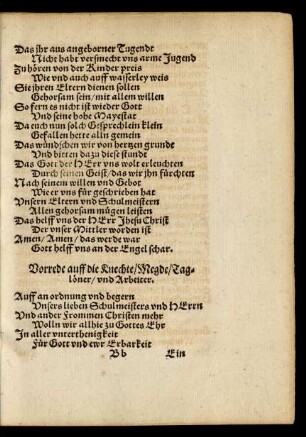 Das jhr aus angeborner Tugendt
Nicht habt versmecht vns arme Jugend
Zu hören von der Kinder preis
Wie vnd auch auff waßerley weis
Sie jhren Eltern dienen sollen
Gehorsam sein/mit allem willen
So fern es nicht ist wieder Gott
Vnd seine hohe Mayestat
Da euch nun solch Gesprechlein klein
Gefallen hette alln gemein
Das wündschen wir von hertzen grundt
Vnd bitten dazu diese stundt
Das Gott der HErr vns wolt erleuchten
Durch seinen Geist/das wir jhn fürchten
Nach seinem willen vnd Gebot
Wie er vns für geschrieben hat
Vnsern Eltern vnd Schulmeistern
Allen gehorsam mügen leisten
Das helff vns der HErr Jhesu Christ
Der vnser Mittler worden ist
Amen/Amen/das werde war
Gott helff vns an der Engel schar.
Vorrede auff die Knechte/Megde/Tag-
löner/vnd Arbeiter.
Auff anordnung vnd begern
Vnsers lieben Schulmeisters vnd HErrn
Vnd ander Frommen Christen mehr
Wolln wir allhie zu Gottes Ehr
In aller vnterthenigkeit
Für Gott vnd ewr Erbarkeit
Bb Ein